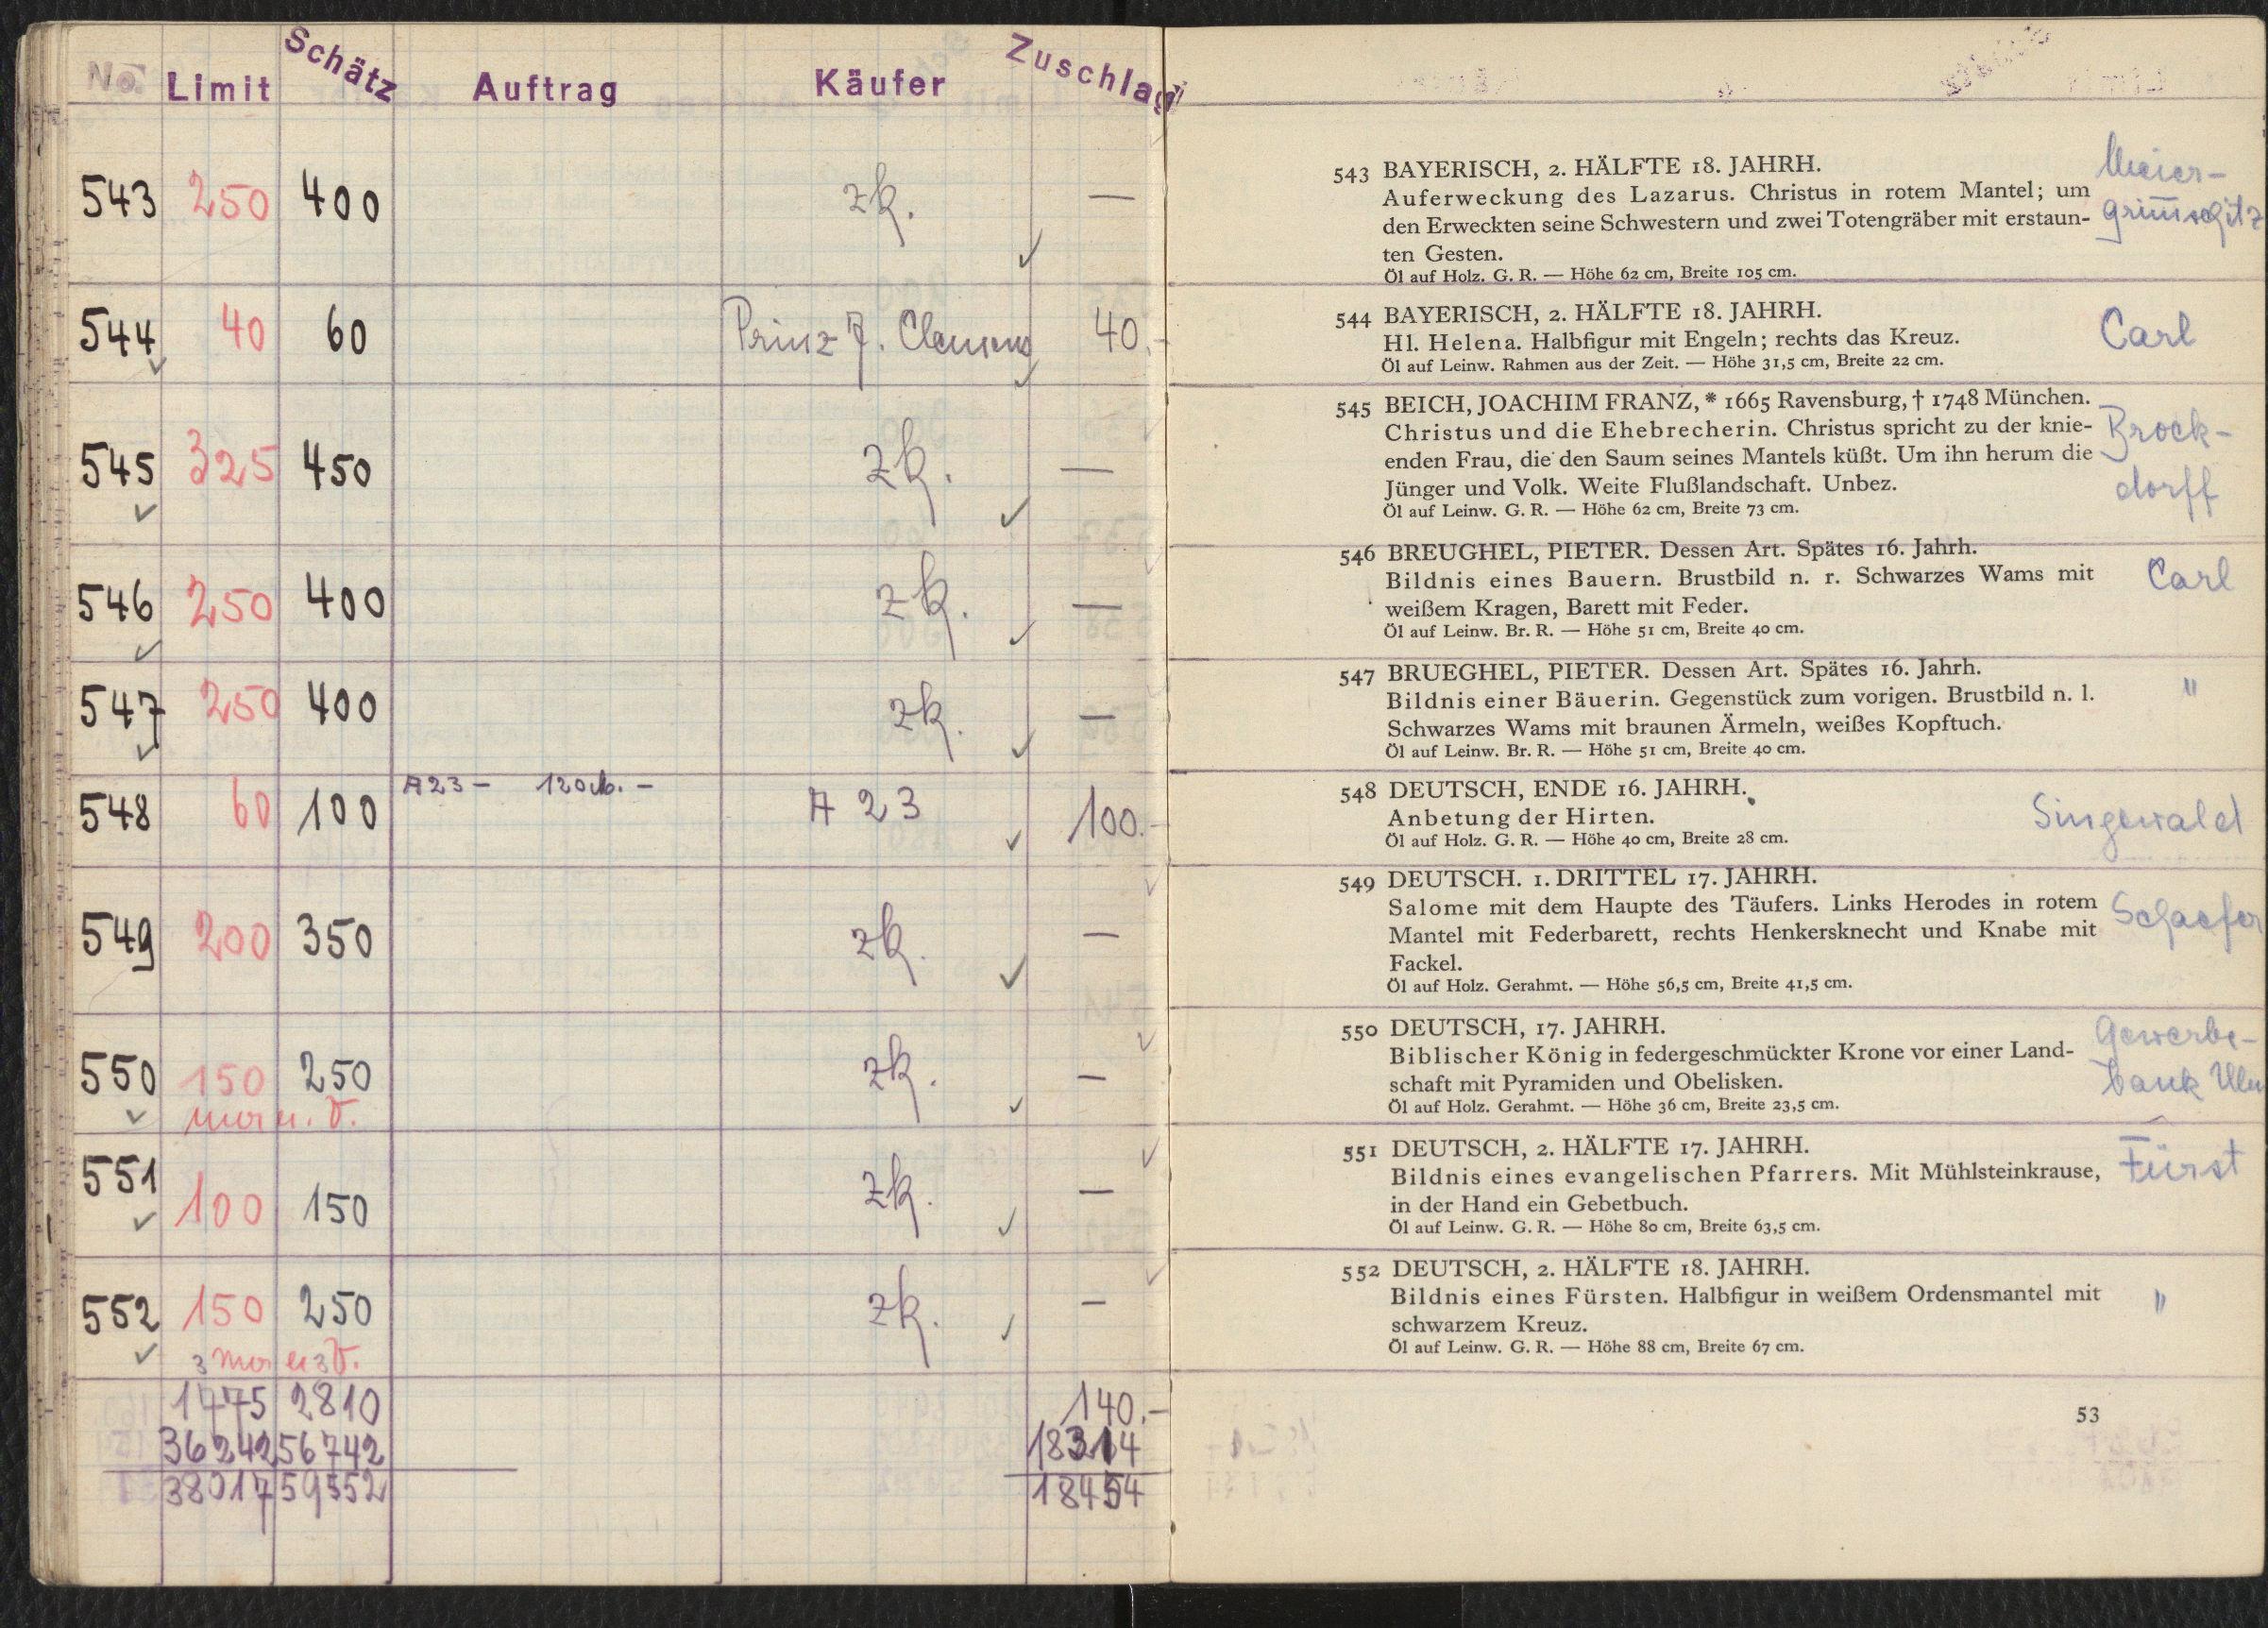 No. Limit Schätz Auftrag Käufer Zuschlag
543 250 400 zk. —
544 40 60 Prinz J. Clemens 40.-
545 325 450 zk. —
546 250 400 zk. —
547 250 400 zk. —
548 60 100 A23 — 120 M. — A 23 100.-
549 200 350 zk. —
550 150 250 zk. —
551 100 150 zk. —
552 150 250 zk. —
1475 2810 140.-
36242 56742 18314
38017 59552 18454
543 BAYERISCH, 2. HÄLFTE 18. JAHRH.
Auferweckung des Lazarus. Christus in rotem Mantel; um
den Erweckten seine Schwestern und zwei Totengräber mit erstaun-
ten Gesten.
Öl auf Holz. G. R. — Höhe 62 cm, Breite 105 cm.
Meier-
grimschitz
544 BAYERISCH, 2. HÄLFTE 18. JAHRH.
Hl. Helena. Halbfigur mit Engeln; rechts das Kreuz.
Öl auf Leinw. Rahmen aus der Zeit. — Höhe 31,5 cm, Breite 22 cm.
Carl
545 BEICH, JOACHIM FRANZ, * 1665 Ravensburg, † 1748 München.
Christus und die Ehebrecherin. Christus spricht zu der knie-
enden Frau, die den Saum seines Mantels küßt. Um ihn herum die
Jünger und Volk. Weite Flußlandschaft. Unbez.
Öl auf Leinw. G. R. — Höhe 62 cm, Breite 73 cm.
Brock-
dorff
546 BREUGHEL, PIETER. Dessen Art. Spätes 16. Jahrh.
Bildnis eines Bauern. Brustbild n. r. Schwarzes Wams mit
weißem Kragen, Barett mit Feder.
Öl auf Leinw. Br. R. — Höhe 51 cm, Breite 40 cm.
Carl
547 BRUEGHEL, PIETER. Dessen Art. Spätes 16. Jahrh.
Bildnis einer Bäuerin. Gegenstück zum vorigen. Brustbild n. l.
Schwarzes Wams mit braunen Ärmeln, weißes Kopftuch.
Öl auf Leinw. Br. R. — Höhe 51 cm, Breite 40 cm.
"
548 DEUTSCH, ENDE 16. JAHRH.
Anbetung der Hirten.
Öl auf Holz. G. R. — Höhe 40 cm, Breite 28 cm.
Singewald
549 DEUTSCH. 1. DRITTEL 17. JAHRH.
Salome mit dem Haupte des Täufers. Links Herodes in rotem
Mantel mit Federbarett, rechts Henkersknecht und Knabe mit
Fackel.
Öl auf Holz. Gerahmt. — Höhe 56,5 cm, Breite 41,5 cm.
Schaefer
550 DEUTSCH, 17. JAHRH.
Biblischer König in federgeschmückter Krone vor einer Land-
schaft mit Pyramiden und Obelisken.
Öl auf Holz. Gerahmt. — Höhe 36 cm, Breite 23,5 cm.
Gewerbe-
bank Ulm
551 DEUTSCH, 2. HÄLFTE 17. JAHRH.
Bildnis eines evangelischen Pfarrers. Mit Mühlsteinkrause,
in der Hand ein Gebetbuch.
Öl auf Leinw. G. R. — Höhe 80 cm, Breite 63,5 cm.
Fürst
552 DEUTSCH, 2. HÄLFTE 18. JAHRH.
Bildnis eines Fürsten. Halbfigur in weißem Ordensmantel mit
schwarzem Kreuz.
Öl auf Leinw. G. R. — Höhe 88 cm, Breite 67 cm.
"
53